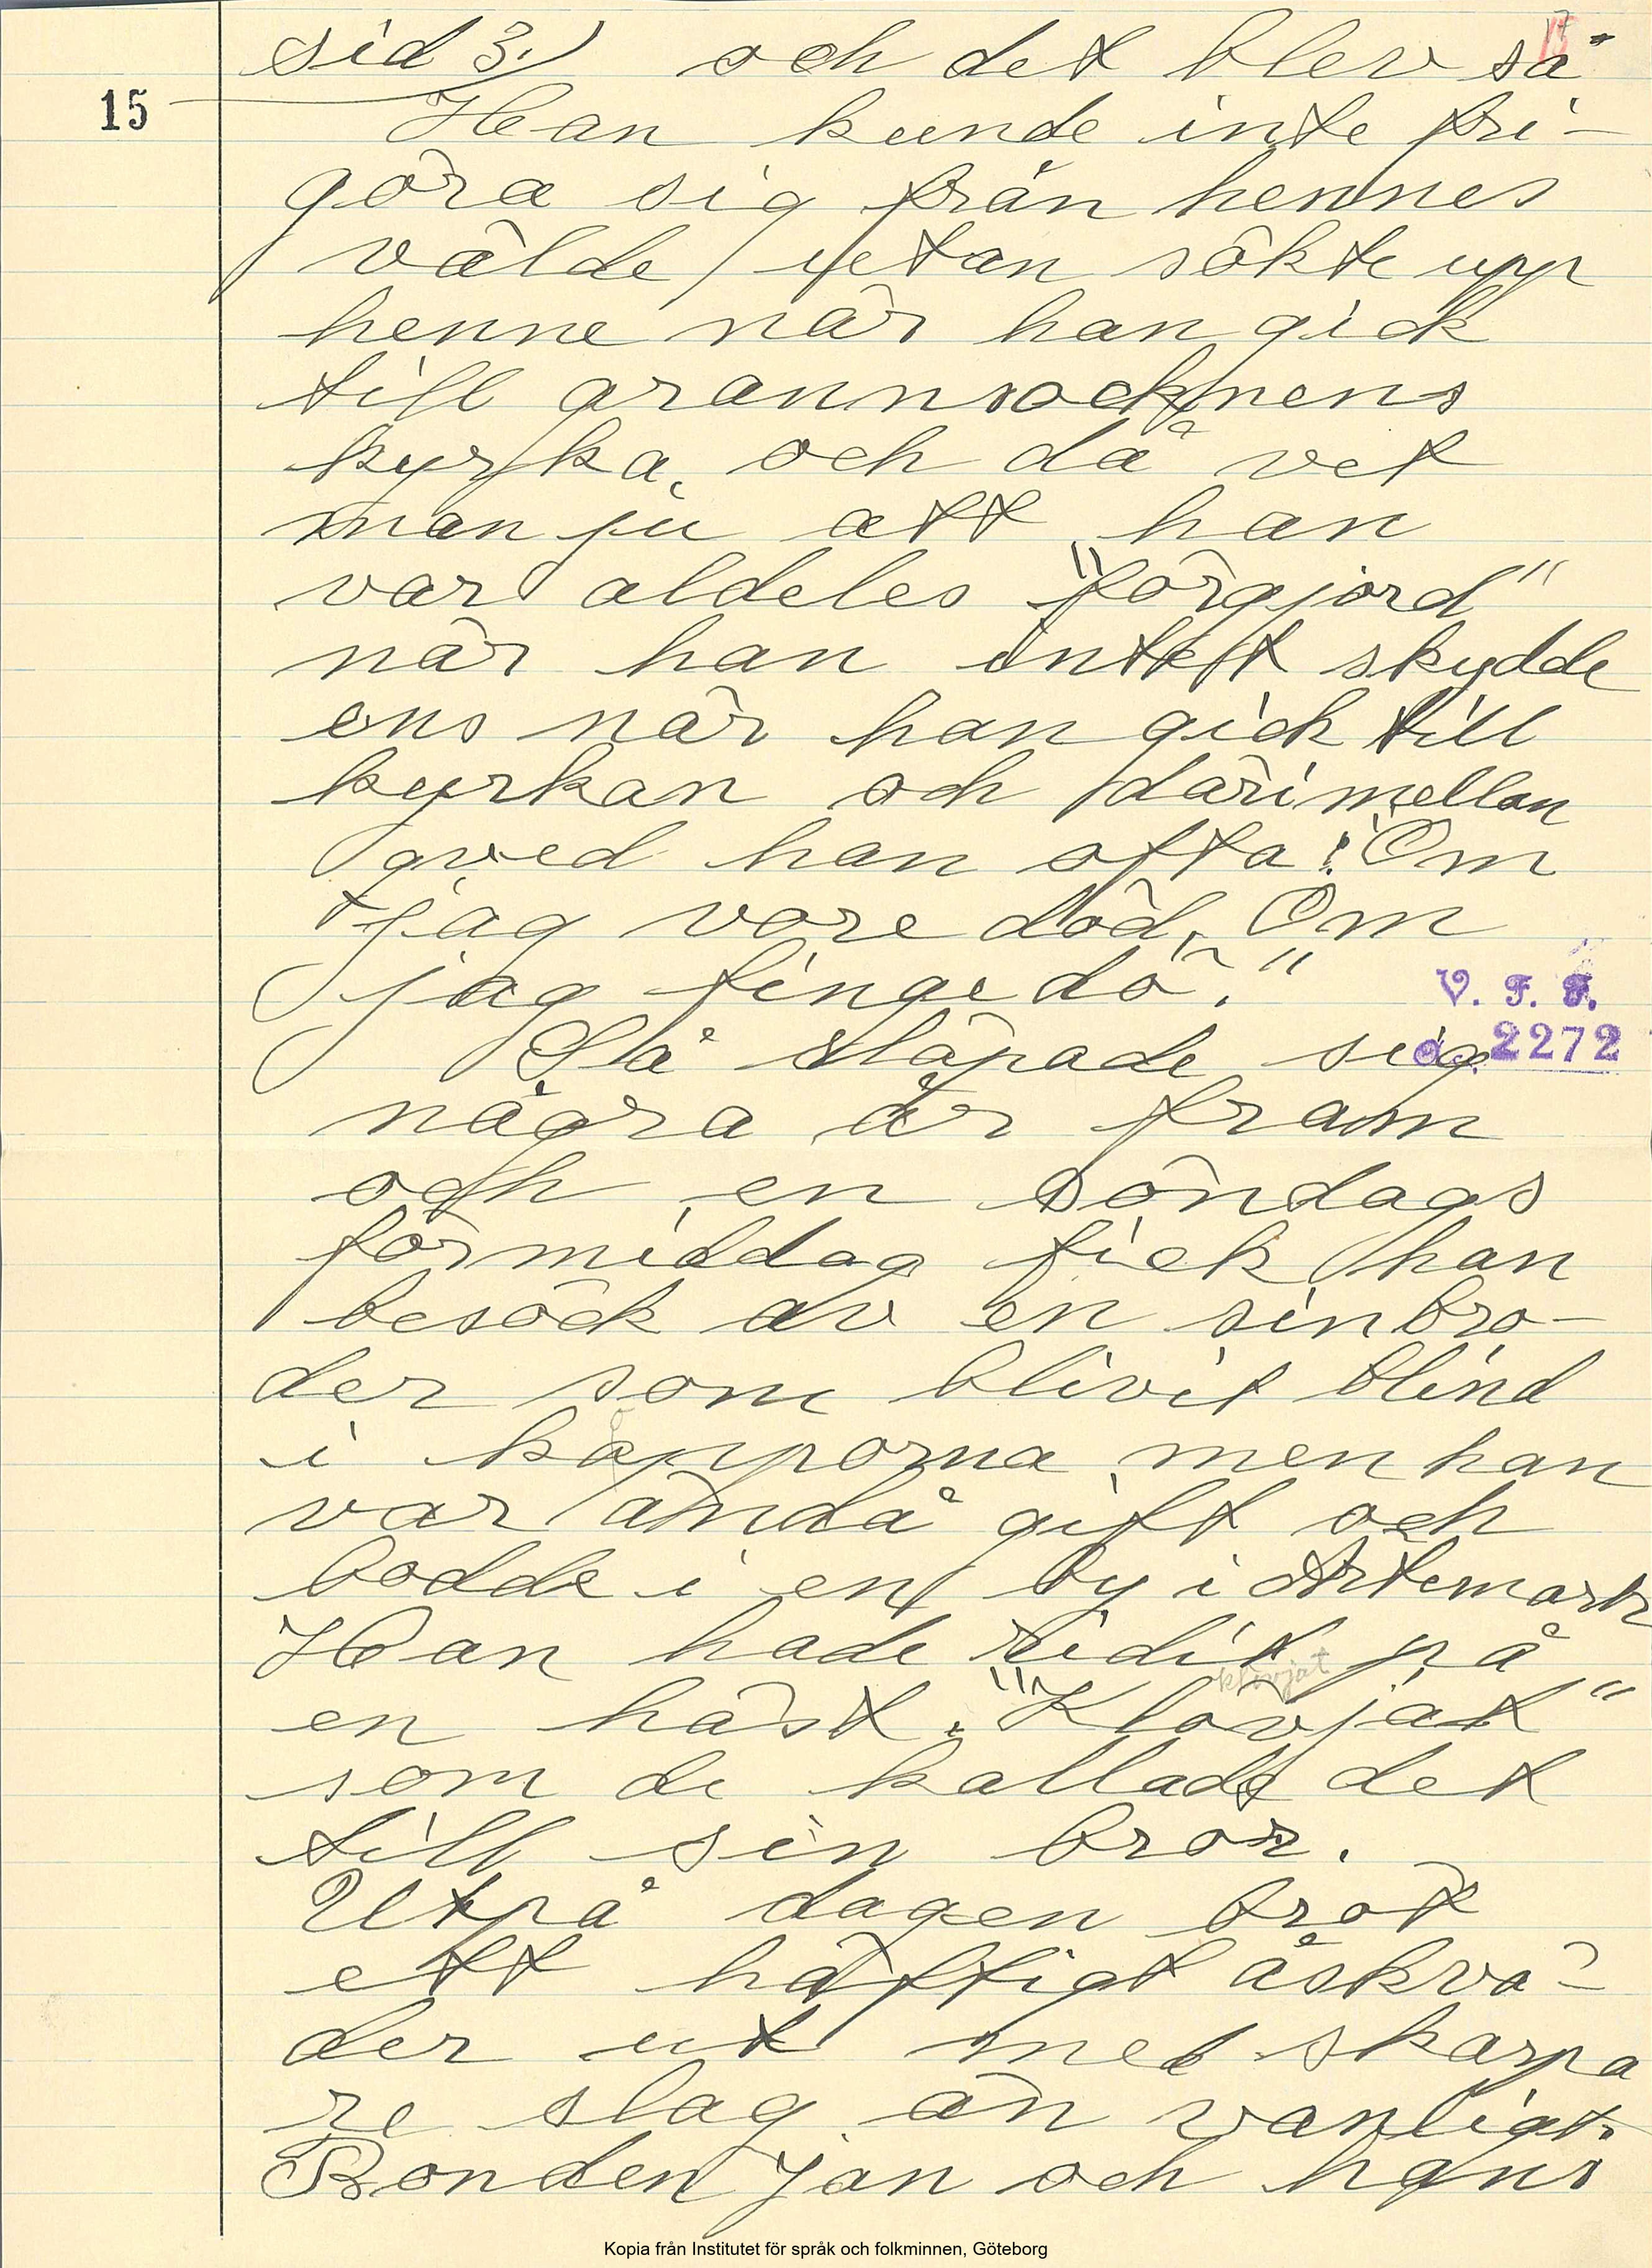 sid 3.) och det blev så
15
Han kunde inte fri-
göra sig från hennes
välde, utan sökte upp
henne när han gick
till grannsocknens
kyrka, och då vet
man ju att han
var aldeles "förgjord"
när han intet skydde
ens när han gick till
kyrkan och därimellan
qved han ofta: "Om
jag vore död, Om
jag finge dö."
V. F. F.
Så släpade sig
2272
några år fram
och en söndags
förmiddag fick han
besök av en sin bro-
der som blivit blind
i kopporna men han
var ändå gift och
bodde i en by i Ärtemark
Han hade ridit på
klövjat
en häst. "Klövjat"
som de kallade det
till sin bror.
Utpå dagen bröt
ett häftigt åskvä-
der ut med skarpa
re slag än vanligt.
Bonden Jan och hans
Kopia från Institutet för språk och folkminnen, Göteborg